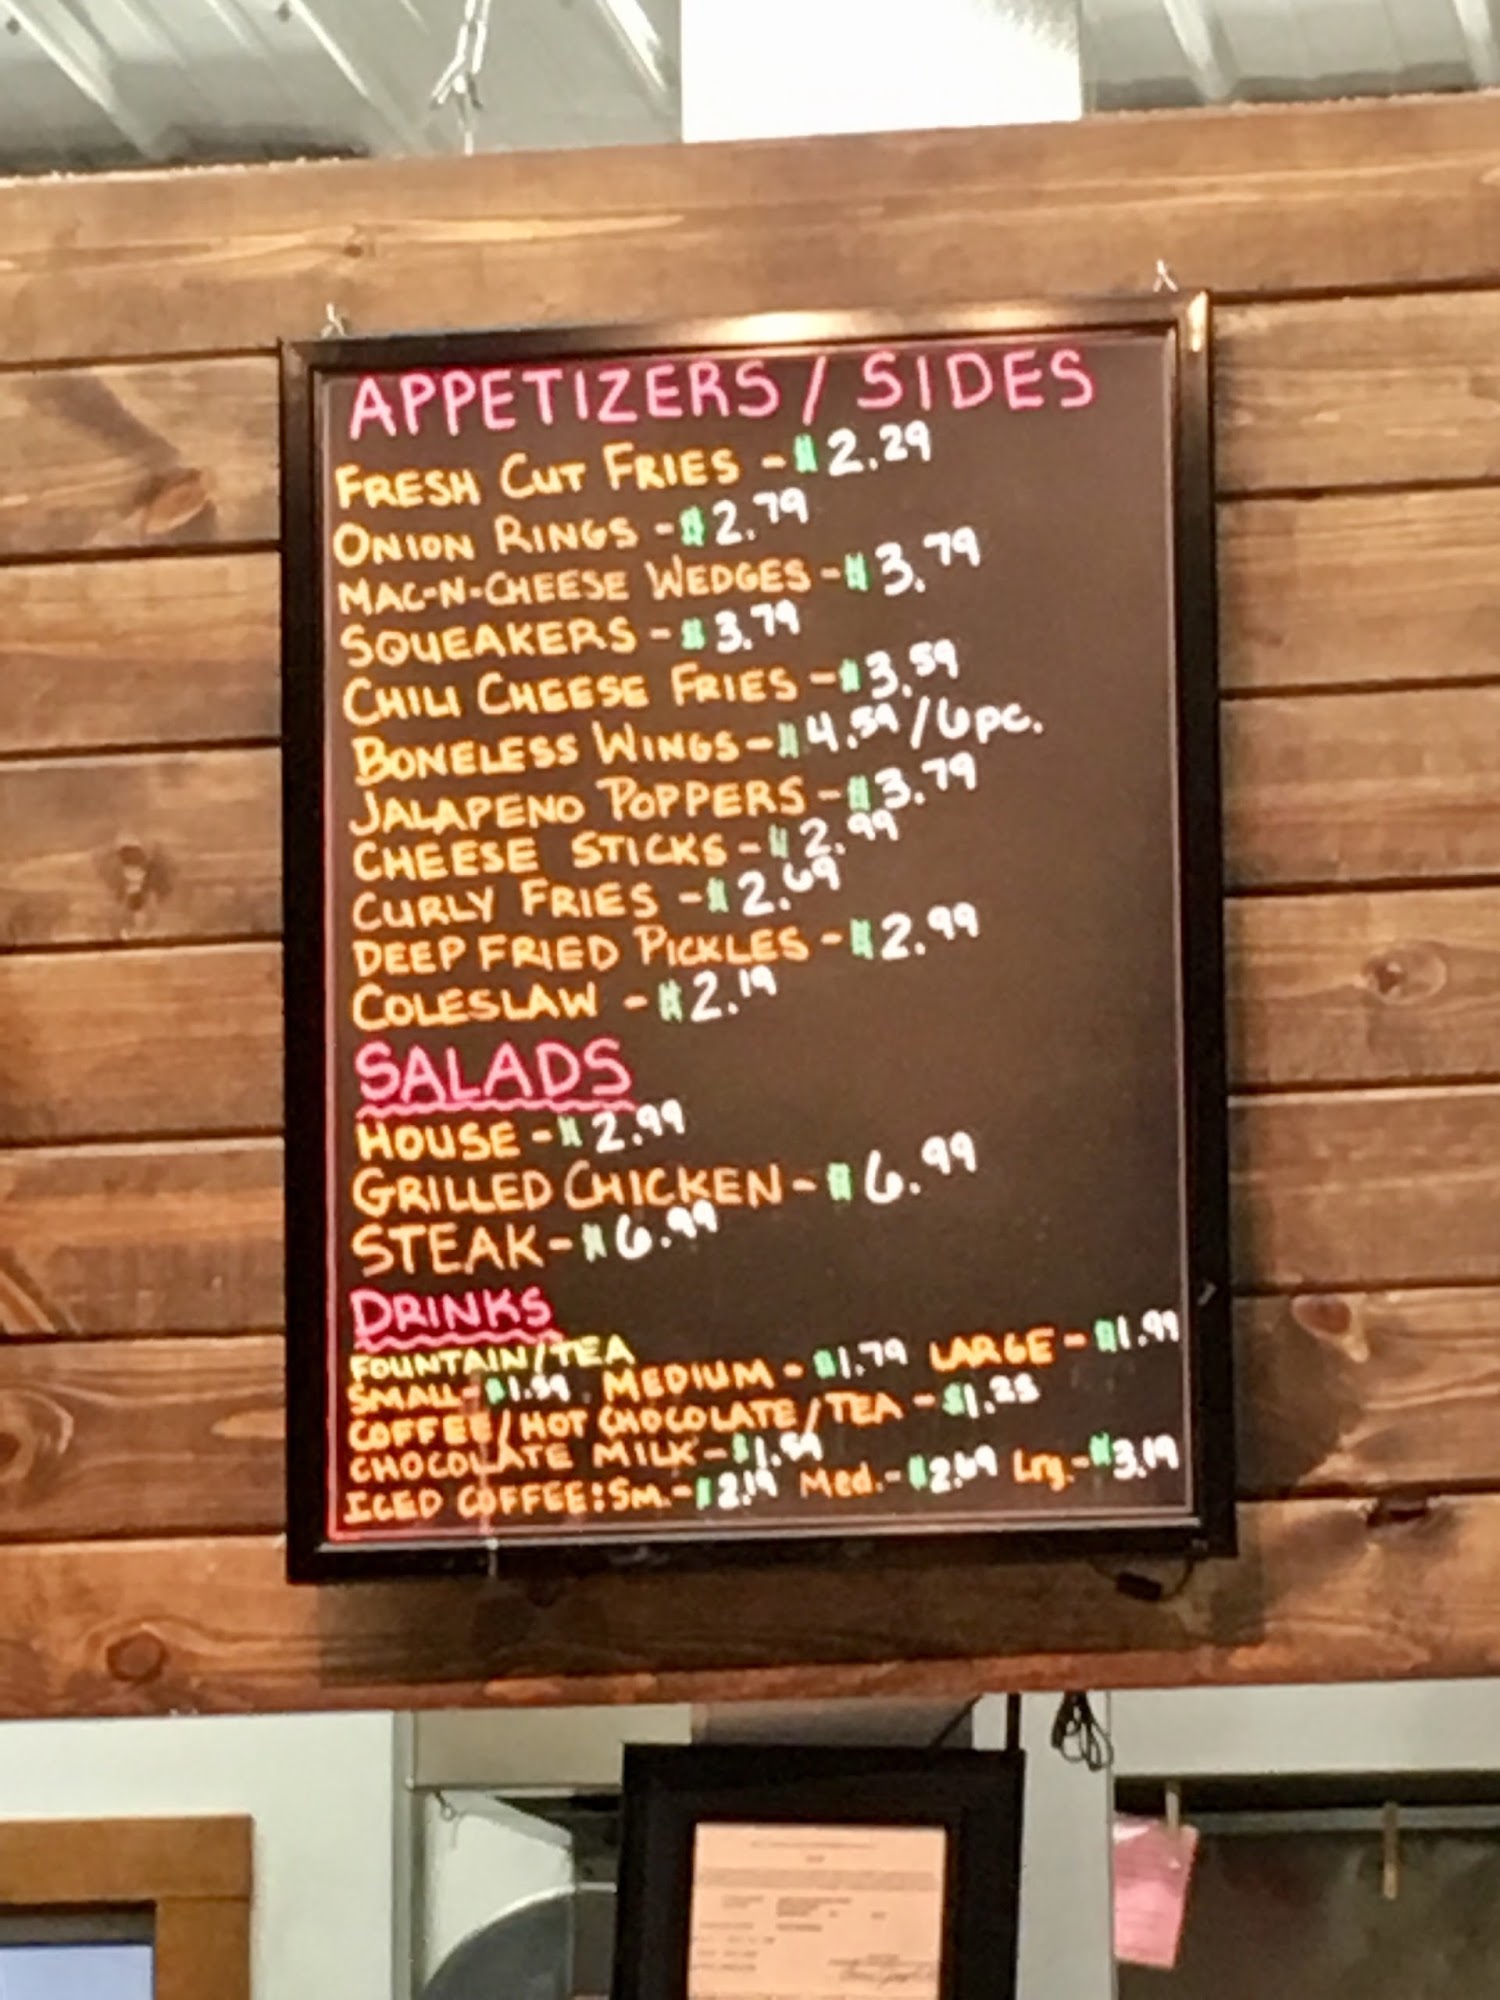 APPETIZERS / SIDES
FRESH CUT FRIES - $2.29
ONION RINGS - $2.79
MAC-N-CHEESE WEDGES - $3.79
SQUEAKERS - $3.79
CHILI CHEESE FRIES - $3.59
BONELESS WINGS - $4.59/6pc.
JALAPENO POPPERS - $3.79
CHEESE STICKS - $2.99
CURLY FRIES - $2.69
DEEP FRIED PICKLES - $2.99
COLESLAW - $2.19
SALADS
HOUSE - $2.99
GRILLED CHICKEN - $6.99
STEAK - $6.99
DRINKS
FOUNTAIN/TEA
SMALL - $1.59 MEDIUM - $1.79 LARGE - $1.99
COFFEE/HOT CHOCOLATE/TEA - $1.25
CHOCOLATE MILK - $1.59
ICED COFFEE: SM. - $2.19 Med. - $2.69 Lrg. - $3.19